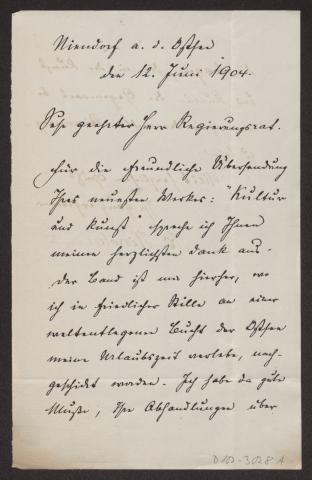 Niendorf a. d. Ostsee
den 12. Juni 1904.
Sehr geehrter Herr Regierungsrat.
Für die freundliche Übersendung
Ihres neuesten Werkes: "Kultur
und Kunst" spreche ich Ihnen
meinen herzlichsten Dank aus.
Der Band ist mir hierher, wo
ich in friedlicher Stille an einer
weltentlegenen Bucht der Ostsee
meine Urlaubszeit verlebe, nach-
geschickt worden. Ich habe da gute
Muße, Ihre Abhandlungen über
D 102-3028 A